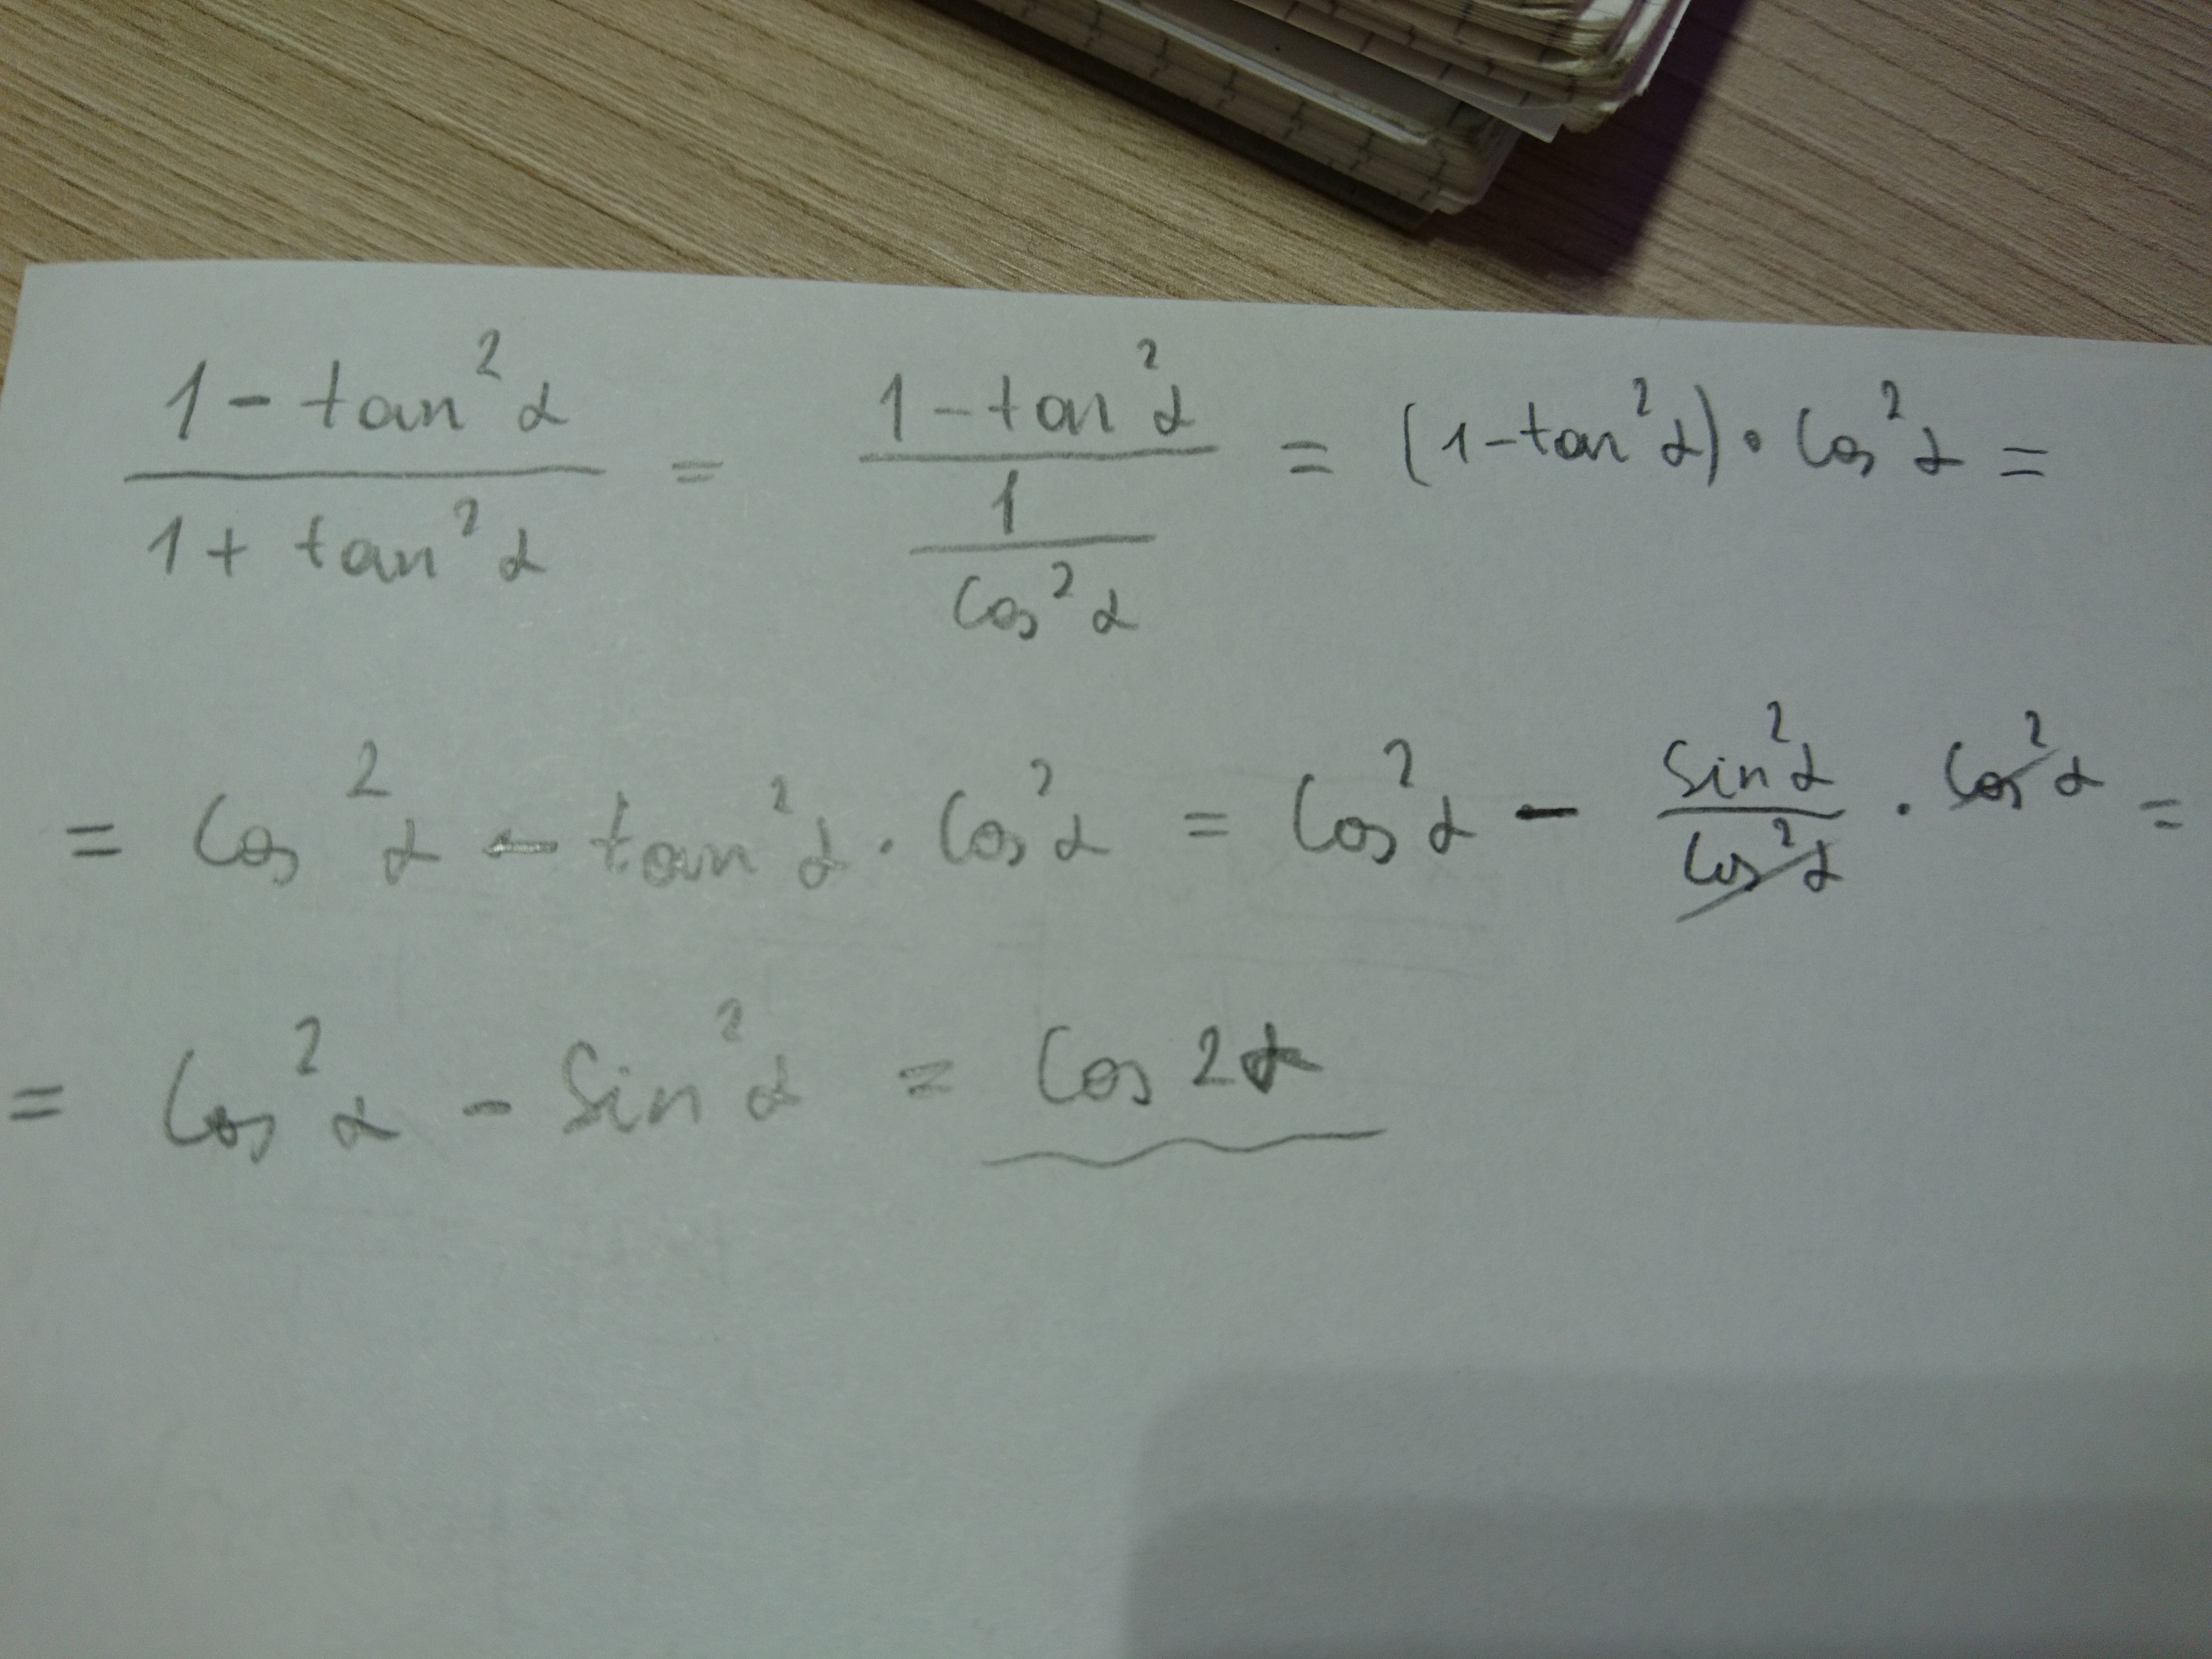 (1 - tan²α)/(1 + tan²α) = (1 - tan²α)/(1/cos²α) = (1 - tan²α) • cos²α =
= cos²α - tan²α · cos²α = cos²α - sin²α/cos²α · cos²α =
= cos²α - sin²α = cos 2α